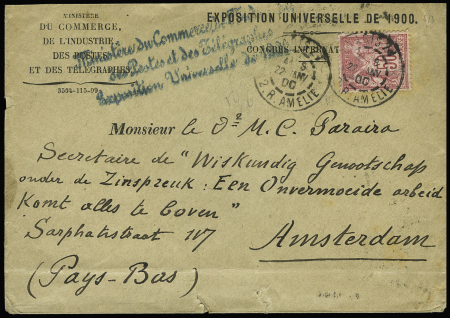 MINISTÈRE
DU COMMERCE,
DE L'INDUSTRIE,
DES POSTES
ET DES TÉLÉGRAPHES
3504-115-99
EXPOSITION UNIVERSELLE DE 1900.
CONGRÈS INTERNAT
Ministère du Commerce
des Postes et des Télégraphes
Exposition Universelle de
PARIS
00
2. R. AMELIE
PARIS
00
R. AMELIE
Monsieur le Dr M. C. Paraira
Secretaire de "Wiskundig Genootschap
onder de Zinspreuk: Een Onvermoeide arbeid
Komt alles te boven"
Sarphatistraat 117
Amsterdam
(Pays-Bas)